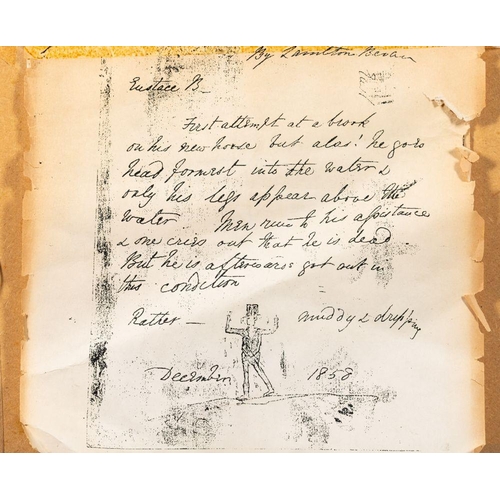 By
Eustace B_
First attempt at a brook
on his new horse but alas! he goes
head formost into the water &
only his legs appear above the
water. Men run to his assistance
& one cries out that he is dead
But he is afterwars got out in
this condition
Rather — muddy & dripping
December 1858